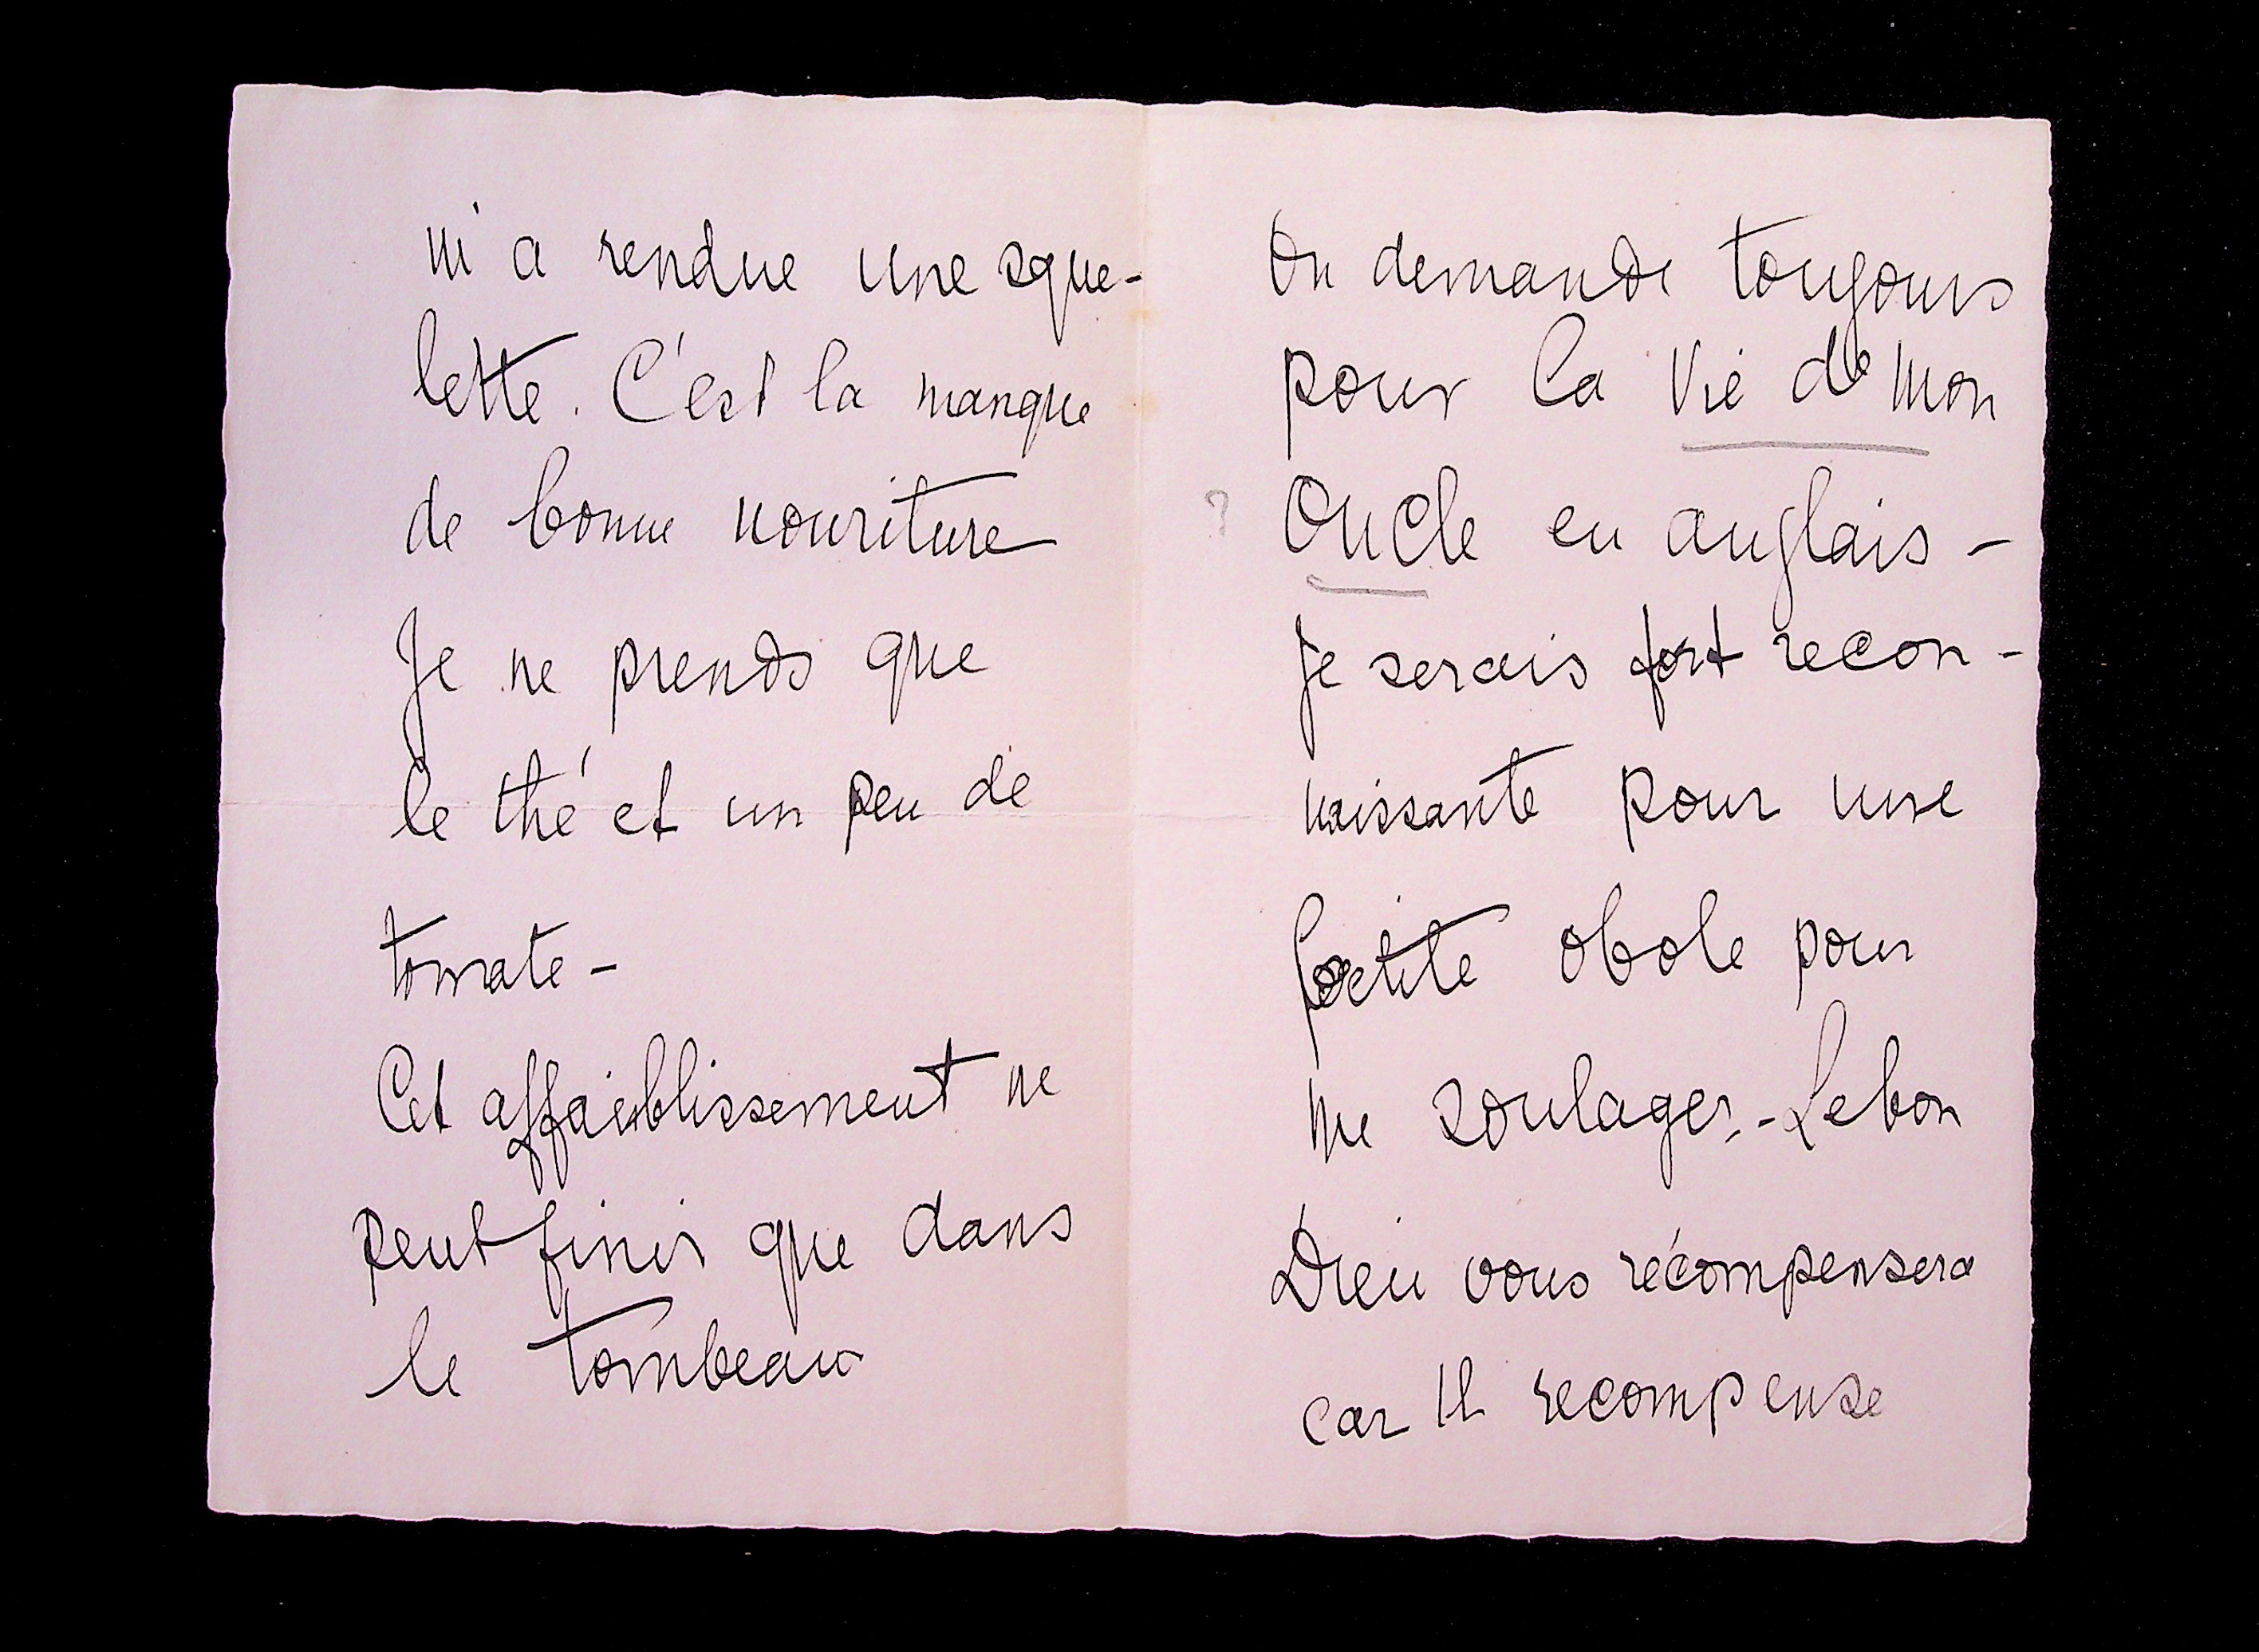 m'a rendue une sque-
lette. C'est la manque
de bonne nouriture
Je ne prends que
le thé et un peu de
tomate -
Cet affaiblissement ne
peut finir que dans
le tombeau
On demande toujours
pour la Vie de Mon
?
Oncle en anglais -
Je serais fort recon -
naissante pour une
petite obole pour
me soulager. - Le bon
Dieu vous récompensera
car Il recompense